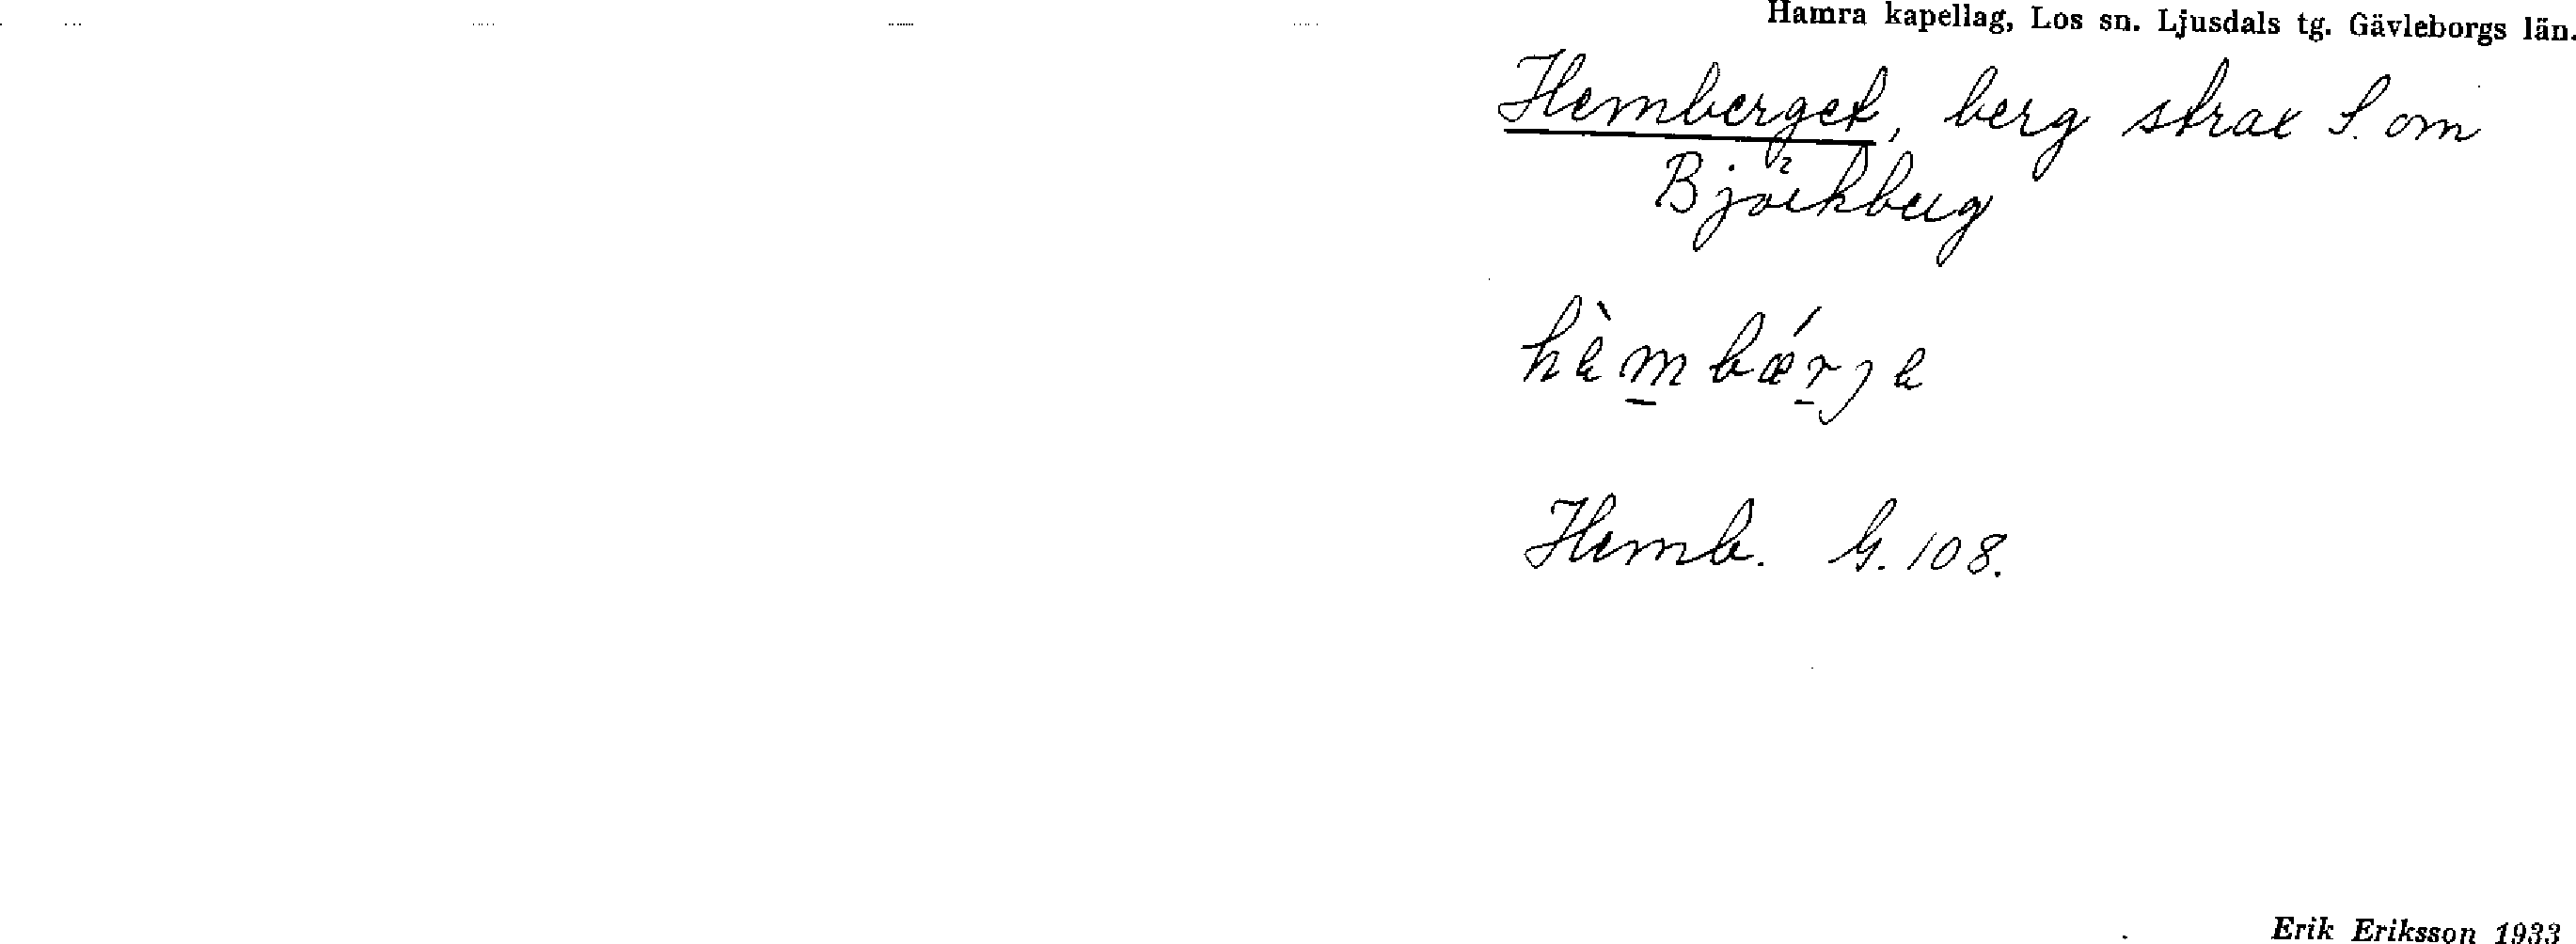 Hamra kapellag, Los sn. Ljusdals tg. Gävleborgs län.
Hemberget, berg strax S. om
Björkberg
hèmbǽrje
Hemb. G. 108.
Erik Eriksson 1933